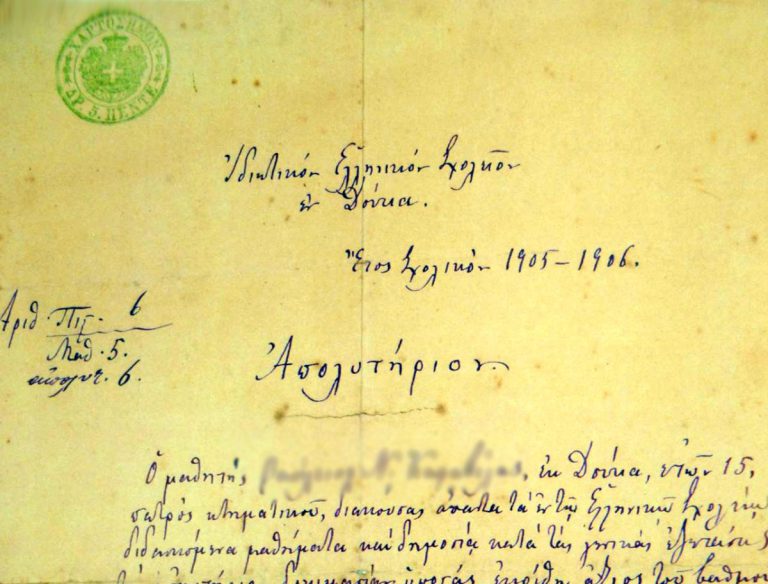 ΧΑΡΤΟΣΗΜΟΝ
ΔΡ. 5. ΠΕΝΤΕ
Ἰδιωτικόν Ἑλληνικόν Σχολεῖον
ἐν Δούκα.
Ἔτος Σχολικόν 1905 – 1906.
Ἀριθ. Πιτ. 6
Μαθ. 5.
ἀπολυτ. 6.
Ἀπολυτήριον.
Ὁ μαθητής , ἐκ Δούκα, ἐτῶν 15,
πατρός κτηματικοῦ, διακούσας ἅπαντα τά ἐν τῷ Ἑλληνικῷ Σχολείῳ
διδασκόμενα μαθήματα καί δημοσίᾳ κατά τάς γενικάς ἐξετάσεις
δοκιμασίαν ὑποστάς ἐκρίθη ἄξιος τοῦ βαθμοῦ